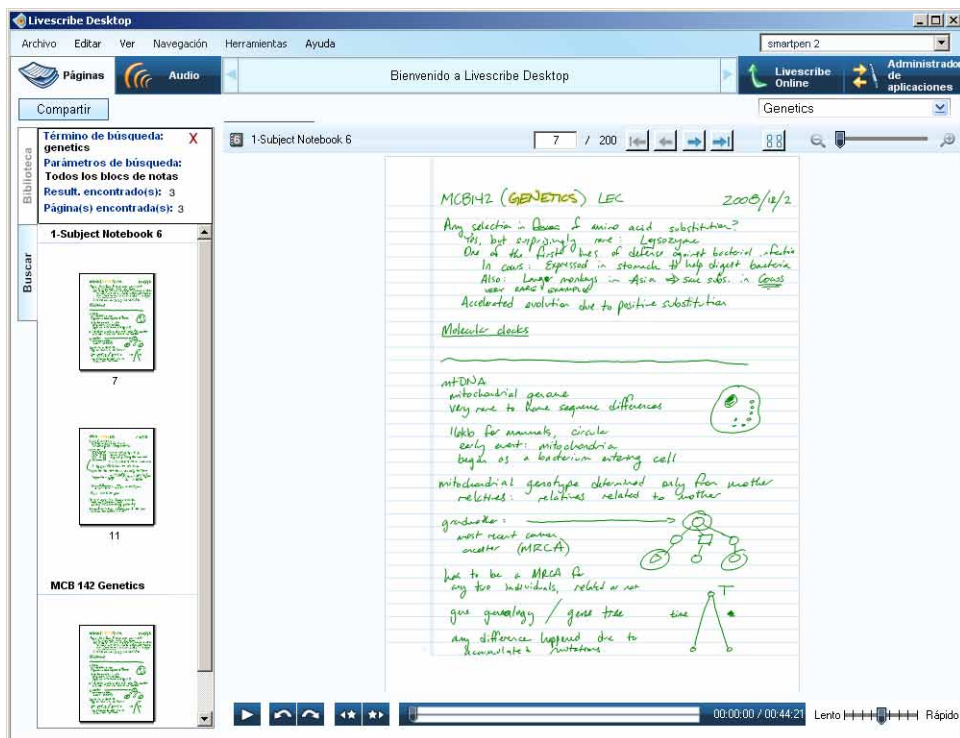 Livescribe Desktop
Archivo Editar Ver Navegación Herramientas Ayuda
smartpen 2
Páginas
Audio
Bienvenido a Livescribe Desktop
Livescribe Online
Administrador de aplicaciones
Compartir
Genetics
Biblioteca
Buscar
Término de búsqueda:
genetics
Parámetros de búsqueda:
Todos los blocs de notas
Result. encontrado(s): 3
Página(s) encontrada(s): 3
X
1-Subject Notebook 6
7
11
MCB 142 Genetics
1-Subject Notebook 6
7 / 200
MCB142 (GENETICS) LEC 2008/12/2
Any selection in amino acid substitution?
Yes, but surprisingly rare: Lysozyme
One of the first lines of defense against bacterial infectio
In cows: Expressed in stomach to help digest bacteria
Also: monkeys in Asia → same subs. in Cows
VERY RARE EXAMPLE
Accelerated evolution due to positive substitution
Molecular clocks
mtDNA
mitochondrial genome
very rare to have sequence differences
16kb for mammals, circular
early event: mitochondria
began as a bacterium entering cell
mitochondrial genotype determined only from mother
relatives: relatives related to mother
grandmother:
most recent common
ancestor (MRCA)
has to be a MRCA for
any two individuals, related or not
gene genealogy / gene tree
time
T
any difference happened due to
accumulated mutations
00:00:00 / 00:44:21
Lento
Rápido